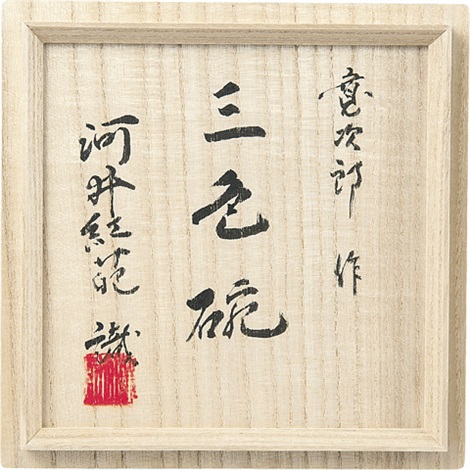 寛次郎 作
三色碗
河井紅葩 識